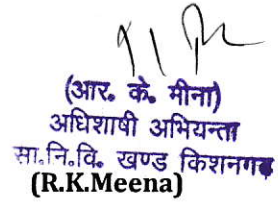 (आर. के. मीना)
अधिशाषी अभियन्ता
सा.नि.वि. खण्ड किशनगढ
(R.K.Meena)